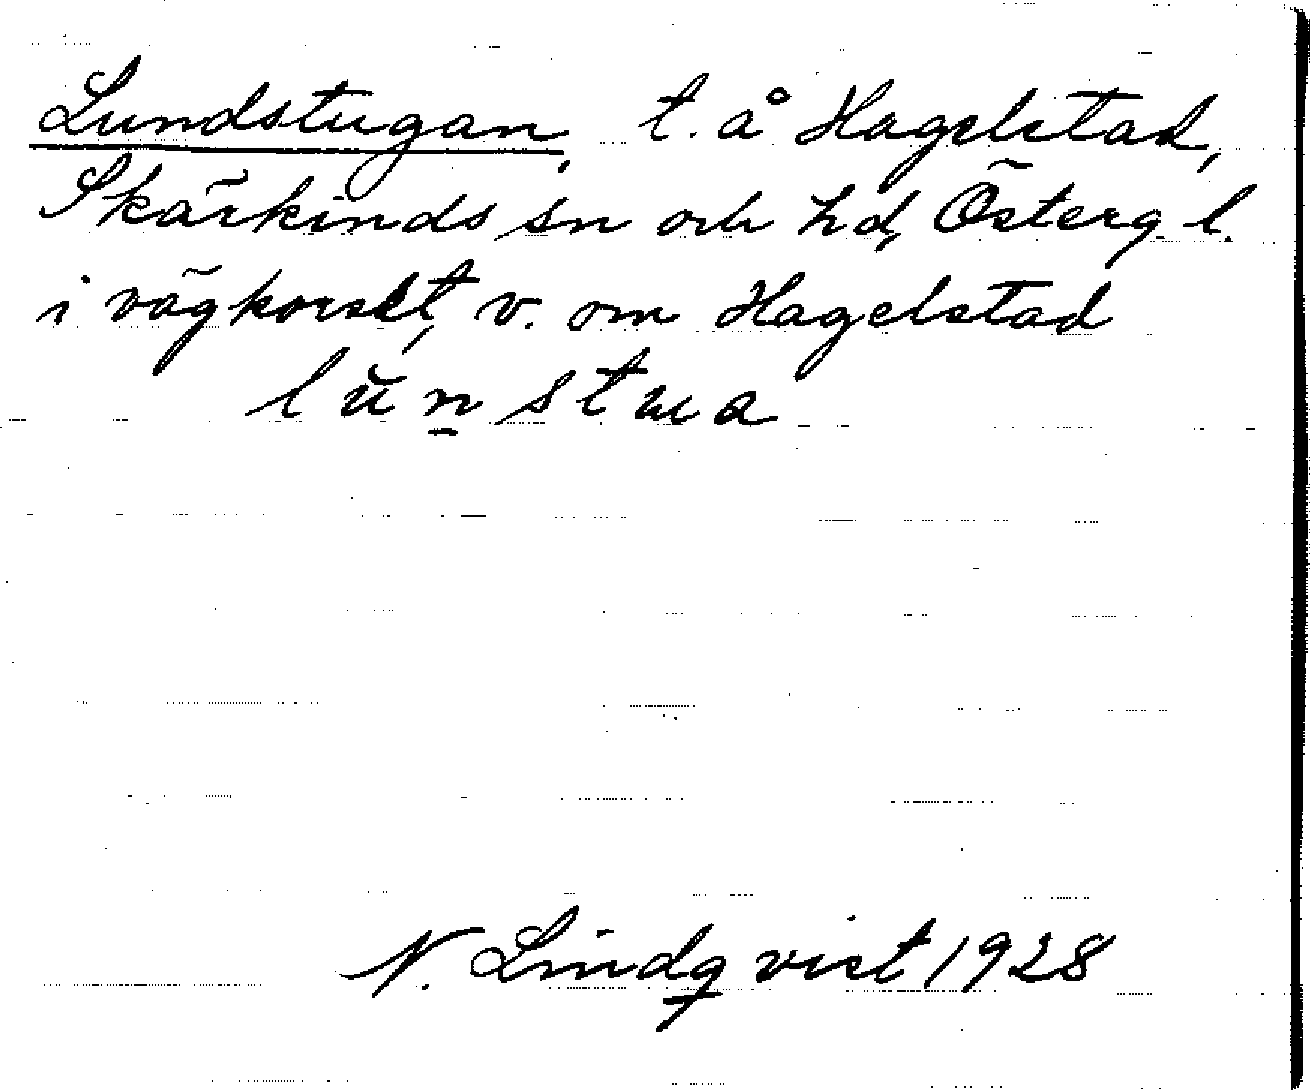 Lundstugan, t. å Hagelstad,
Skärkinds sn och hd, Österg. l.
i vägkorset, v. om Hagelstad
lŭn̲stua
N. Lindqvist 1928